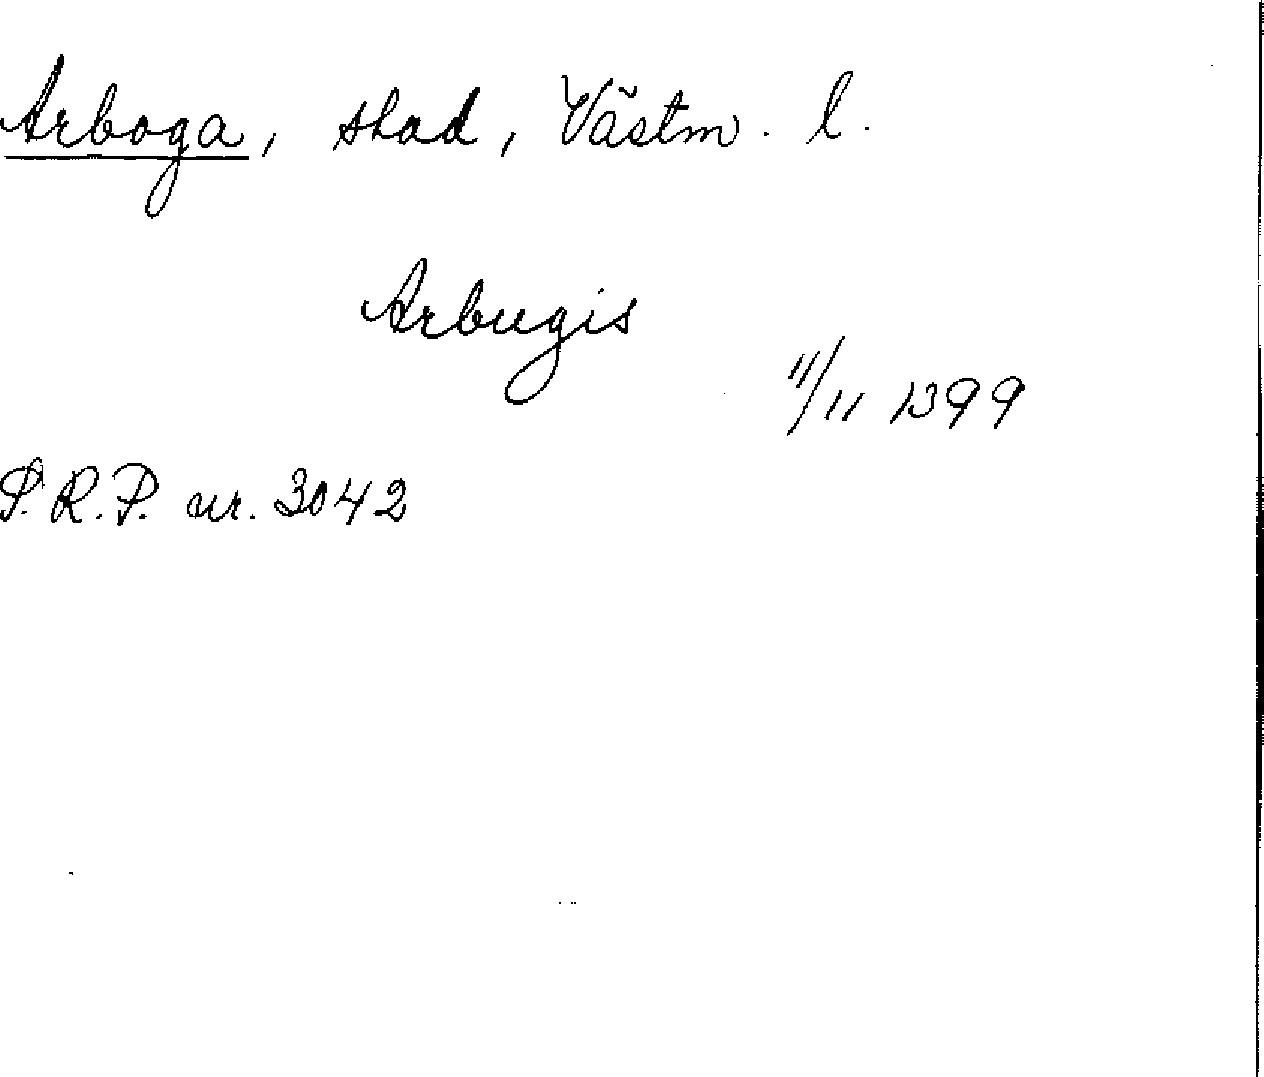 Arboga, stad, Västm. l.
Arbugis
11/11 1399
S.R.P. nr. 3042